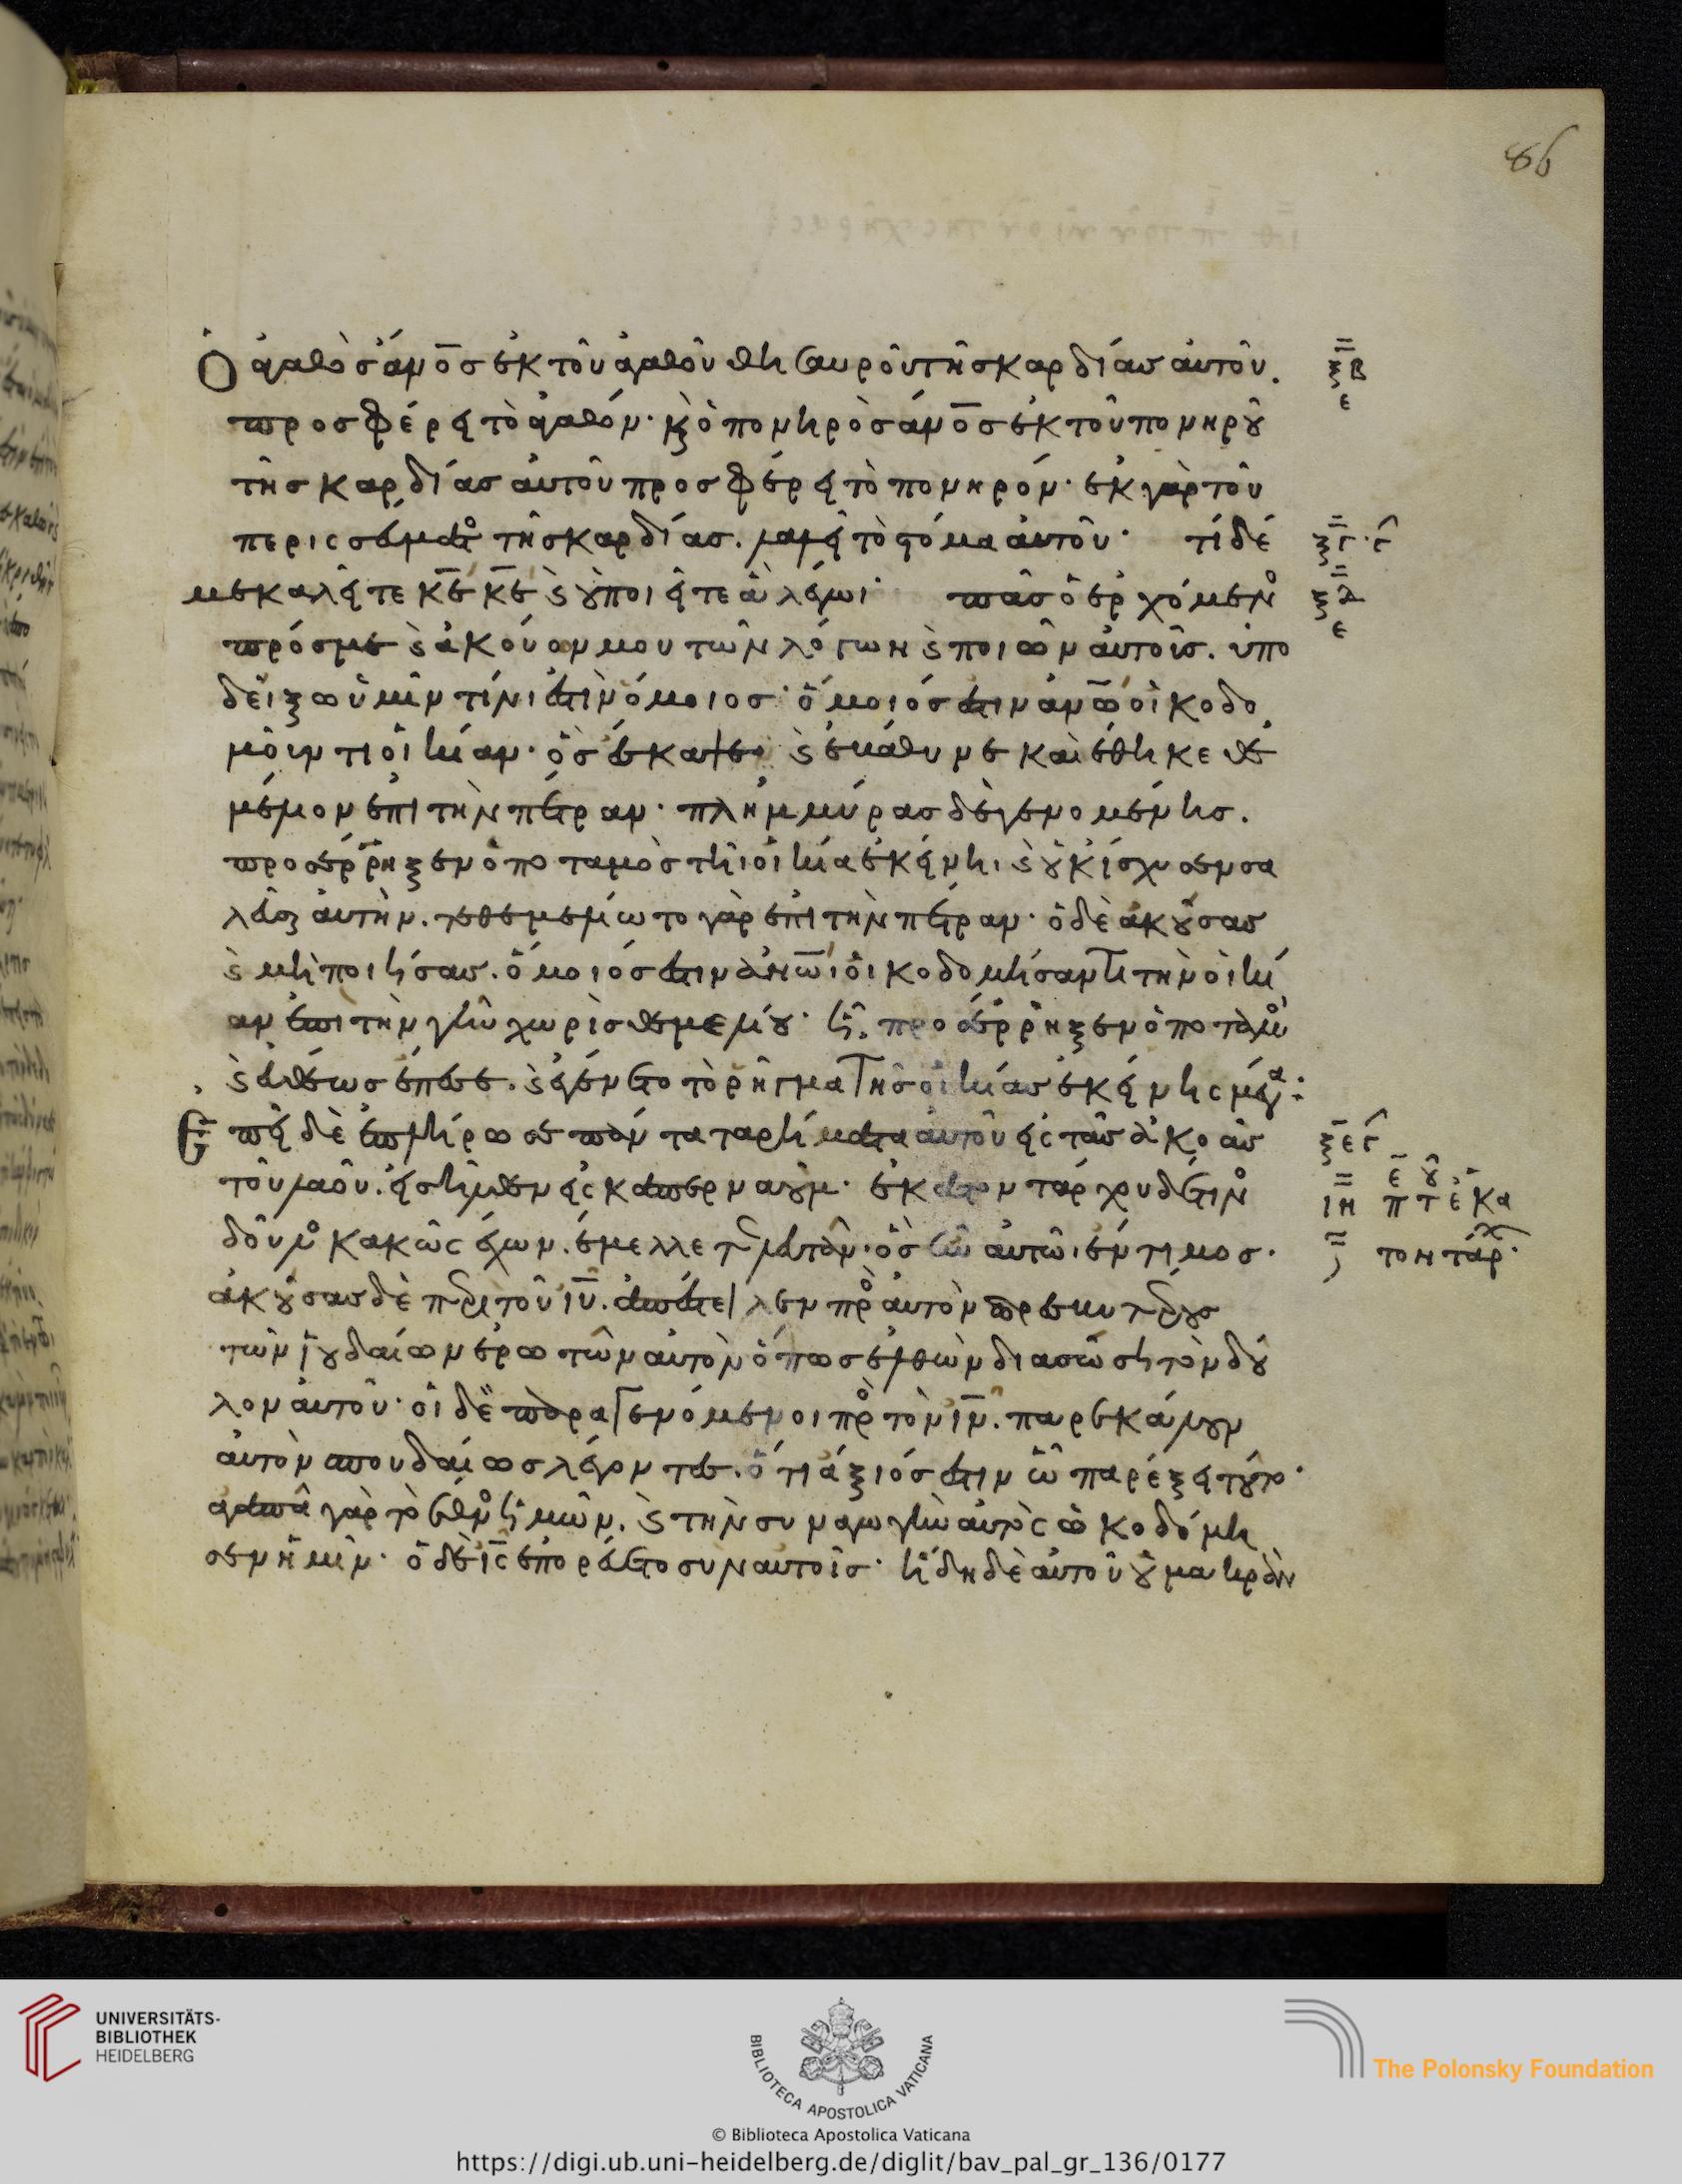 86
Ὁ ἀγαθὸς ἄνος ἐκ τοῦ ἀγαθοῦ θησαυροῦ τῆς καρδίας αὐτοῦ. ξβ ε
προσφέρει τὸ ἀγαθόν· κ ὁ πονηρὸς ἄνος ἐκ τοῦ πονηροῦ
τῆς καρδίας αὐτοῦ προσφέρει τὸ πονηρόν· ἐκ γὰρ τοῦ
περισσεύματο τῆς καρδίας. λαλεῖ τὸ στόμα αὐτοῦ· τί δέ ξγ γ
με καλεῖτε κε κε κ οὐ ποιεῖτε ἃ λέγω· πᾶς ὁ ἐρχόμενο ξδ ε
πρός με κ ἀκούων μου τῶν λόγων κ ποιῶν αὐτοῖς. ὑπο
δείξω ὑμῖν τίνι ἐστὶν ὅμοιος· ὅμοιός ἐστιν ἀνω οἰκοδο
μοῦντι οἰκίαν· ὃς ἔσκαψε κ ἐβάθυνε καὶ ἔθηκε θε
μέλιον ἐπὶ τὴν πέτραν· πλημμύρας δὲ γενομένης.
προσέρρηξεν ὁ ποταμὸς τῆι οἰκία ἐκείνηι κ οὐκ ἴσχυσεν σα
λεῦσαι αὐτήν. τεθεμελίωτο γὰρ ἐπὶ τὴν πέτραν· ὁ δὲ ἀκούσας
κ μὴ ποιήσας. ὅμοιός ἐστιν ἀνωι οἰκοδομήσαντι τὴν οἰκί
αν ἐπὶ τὴν γῆν χωρὶς θεμελίου· ἧ. προσέρρηξεν ὁ ποταμο
κ εὐθέως ἔπεσε. κ ἐγένετο τὸ ῥῆγμα τῆς οἰκίας ἐκείνης μέγα:
Ἐπεὶ δὲ ἐπλήρωσε πάντα τὰ ῥήματα αὐτοῦ εἰς τὰς ἀκοὰς ξε γ
τοῦ λαοῦ. εἰσῆλθεν εἰς καπερναούμ· ἑκατοντάρχου δέ τινο ιη π τ ἑκα
δοῦλο κακῶς ἔχων. ἔμελλε τελευτᾶν· ὃς ἦν αὐτῶι ἔντιμος. τονταρχ
ἀκούσας δὲ περὶ τοῦ ιυ. ἀπέστειλεν προ αὐτὸν πρεσβυτέρους
τῶν ἰουδαίων ἐρωτῶν αὐτὸν ὅπως ἐλθὼν διασώση τὸν δοῦ
λον αὐτοῦ· οἱ δὲ παραγενόμενοι προ τὸν ιν. παρεκάλουν
αὐτὸν σπουδαίως λέγοντες. ὅτι ἄξιός ἐστιν ὧ παρέξει τοῦτο·
ἀγαπᾶ γὰρ τὸ ἔθνο ἡμῶν. κ τὴν συναγωγὴν αὐτὸς ὠκοδόμη
σεν ἡμῖν· ὁ δὲ ις ἐπορεύετο σὺν αὐτοῖς· ἤδη δὲ αὐτοῦ οὐ μακρὰν
UNIVERSITÄTS-
BIBLIOTHEK
HEIDELBERG
BIBLIOTECA APOSTOLICA VATICANA
The Polonsky Foundation
© Biblioteca Apostolica Vaticana
https://digi.ub.uni-heidelberg.de/diglit/bav_pal_gr_136/0177